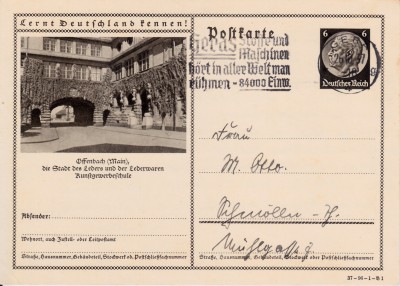 Lernt Deutschland kennen!
Postkarte
Stoffe und
Maschinen
hört in aller Welt man
rühmen - 84000 Einw.
6 6
Deutsches Reich
Offenbach (Main),
die Stadt des Leders und der Lederwaren
Kunstgewerbeschule
Absender:
Wohnort, auch Zustell- oder Leitpostamt
Straße, Hausnummer, Gebäudeteil, Stockwerk od. Postschließfachnummer
Frau
M. Otto.
Schmölln - Th.
Straße, Hausnummer, Gebäudeteil, Stockwerk od. Postschließfachnummer